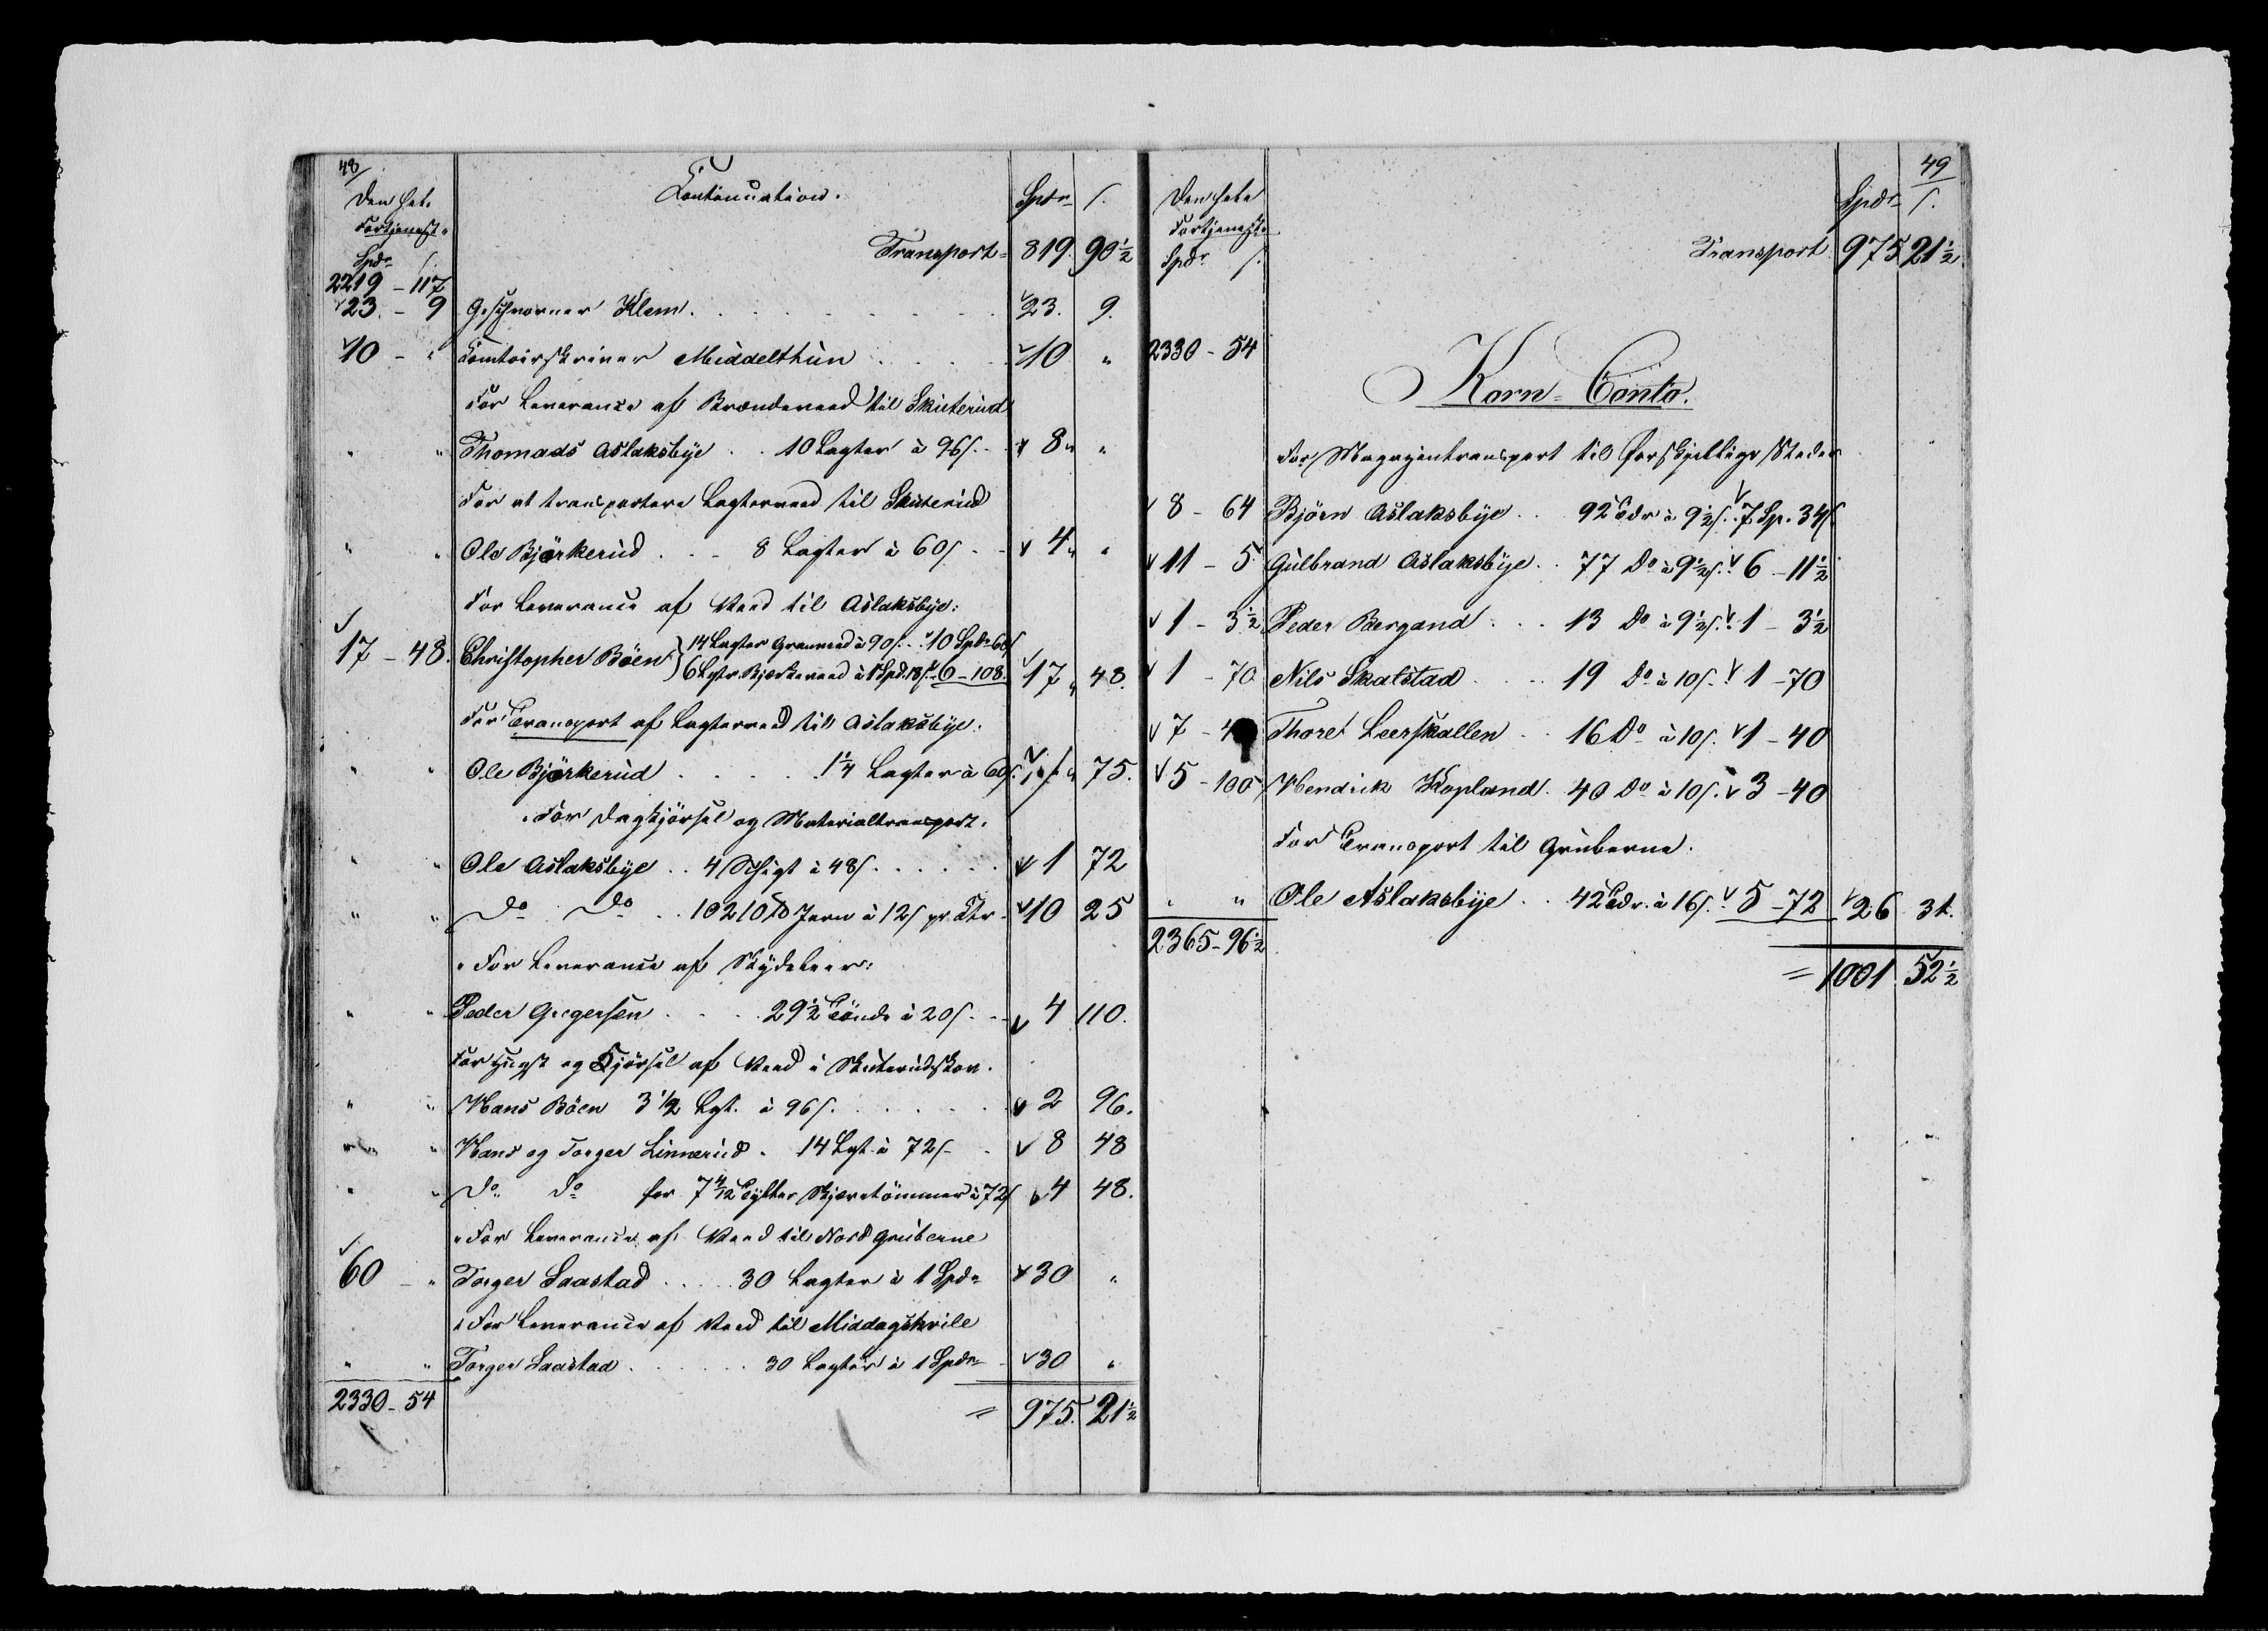 48
Den hele Continuation. Spdr s.
Fortjeneste
Spdr s. Transport 819. 90½
2219 - 117
23. - 9 Geschworner Klem 23. 9.
10 - " Comtoirskriver Middelthun 10 "
For Leverance af Brændeveed til Skuterud
" " Thomads Aslaksbye 10 Lagter à 96 s. 8 "
For at transportere Lagterveed til Skuterud
" " Ole Björkerud 8 Lagter à 60 s. 4 "
For Leverance af Veed til Aslaksbye:
17 - 48. Christopher Böen 14 Lagter Granveed à 90 s. 10 Spdr 60 s
6 Lgtr. Birkeveed à 1 Spd. 18 s. 6 - 108. 17 48.
For Transport af Lagterveed til Aslaksbye:
" " Ole Björkerud 1¼ Lagter à 60 s. " 75.
For Dagkjørsel og Materialtransport.
" " Ole Aslaksbye 4 Schigt à 48 s 1 72
" " Do Do 10210 ℔ Jern à 12 s pr. Ctr. 10 25
For Leverance af
" " Peder Gregersen 29½ Tönde à 20 s. 4 110.
For Hugst og Kjörsel af Veed i Skuterudskov.
" " Hans Böen 3 1/2 Lgt. à 96 s. 2 96.
" " Hans og Torger Linnerud 14 Lgt. à 72 s 8 48
" " Do Do for Tylter Tömmer à 72 s 4 48.
For Leverance af Veed til Nordgruberne
60 - " Torger Saastad 30 Lagter à 1 Spdr 30 "
For Leverance af Veed til Middagshvile
" " Torger Saastad 30 Lagter à 1 Spdr 30 "
2330 - 54 = 975. 21½
49
Den hele Spdr s.
Fortjeneste
Spdr s. Transport 975 21½
2330 - 54
Korn-Conto.
For Magazintransport til forskjellige Steder
8 - 64 Björn Aslaksbye 92 Tdr à 9½ s. 7 Sp. 34 s
11 - 5 Gulbrand Aslaksbye 77 Do à 9½ s. 6 - 11½
1 - 3½ Peder Bergand 13 Do à 9½ s. 1 - 3½
1 - 70 Nils Skatstad 19 Do à 10 s. 1 - 70
7 - Thore Leerskallen 16 Do à 10 s. 1 - 40
5 - 100 Hendrik Kopland 40 Do à 10 s. 3 - 40
For Transport til Gruberne.
" " Ole Aslaksbye 42 Tdr. à 16 s. 5 - 72 26 31.
2365 - 96½
= 1001. 52½